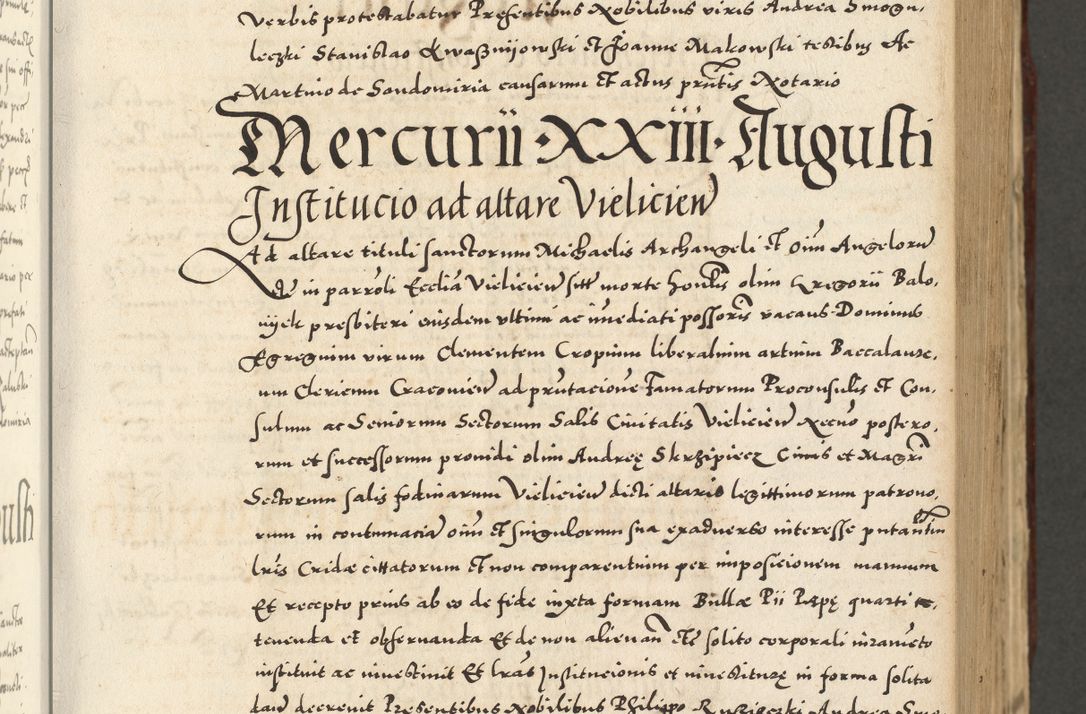 verbis protestabatur Presentibus Nobilibus viris Andrea Smogu,
leczki Stanislao Kwaßnijowski et Joanne Makowski testibus Ac
Martino de Sandomiria causarum et actus pñtis Notario
Mercurii · XXIII · Augusti
Institucio ad altare Vielicien
Ad altare tituli sanctorum Michaelis Archangeli et oiũ Angeloru
in parroli Ecclia Vielicien sitt morte honlis olim Gregorii Balo,
nijek presbiteri eiusdem ultimi ac imediati possoris vacans Dominus
Egregium virum Clementem Cropium liberalium artium Baccalaure,
um Clericum Cracovien ad pñtacione famatorum Proconsulis et Con,
sulum ac Seniorum Sectorum Salis Civitatis Vielicien Necno postero,
rum et successorum providi olim Andreę Skrzipiecz Civis et Magri
Sectorum salis fodinarum Vielicien dicti altaris legittimorum patrono,
rum in contumacia oiũ et singulorum sua exadverso interesse putantium
lris Cridæ cittatorum et non comparentium per imposicionem manuum
Et recepto prius ab eo de fide iuxta formam Bullæ Pii Papę quarti te,
tenenda et observanda Et de non alienan etc solito corporali iurameto
instituit ac investivit Et lras Institucionis et investiturę in forma solita
dan decrevit Presentibus Nobilibus Philippo Andrea Smo